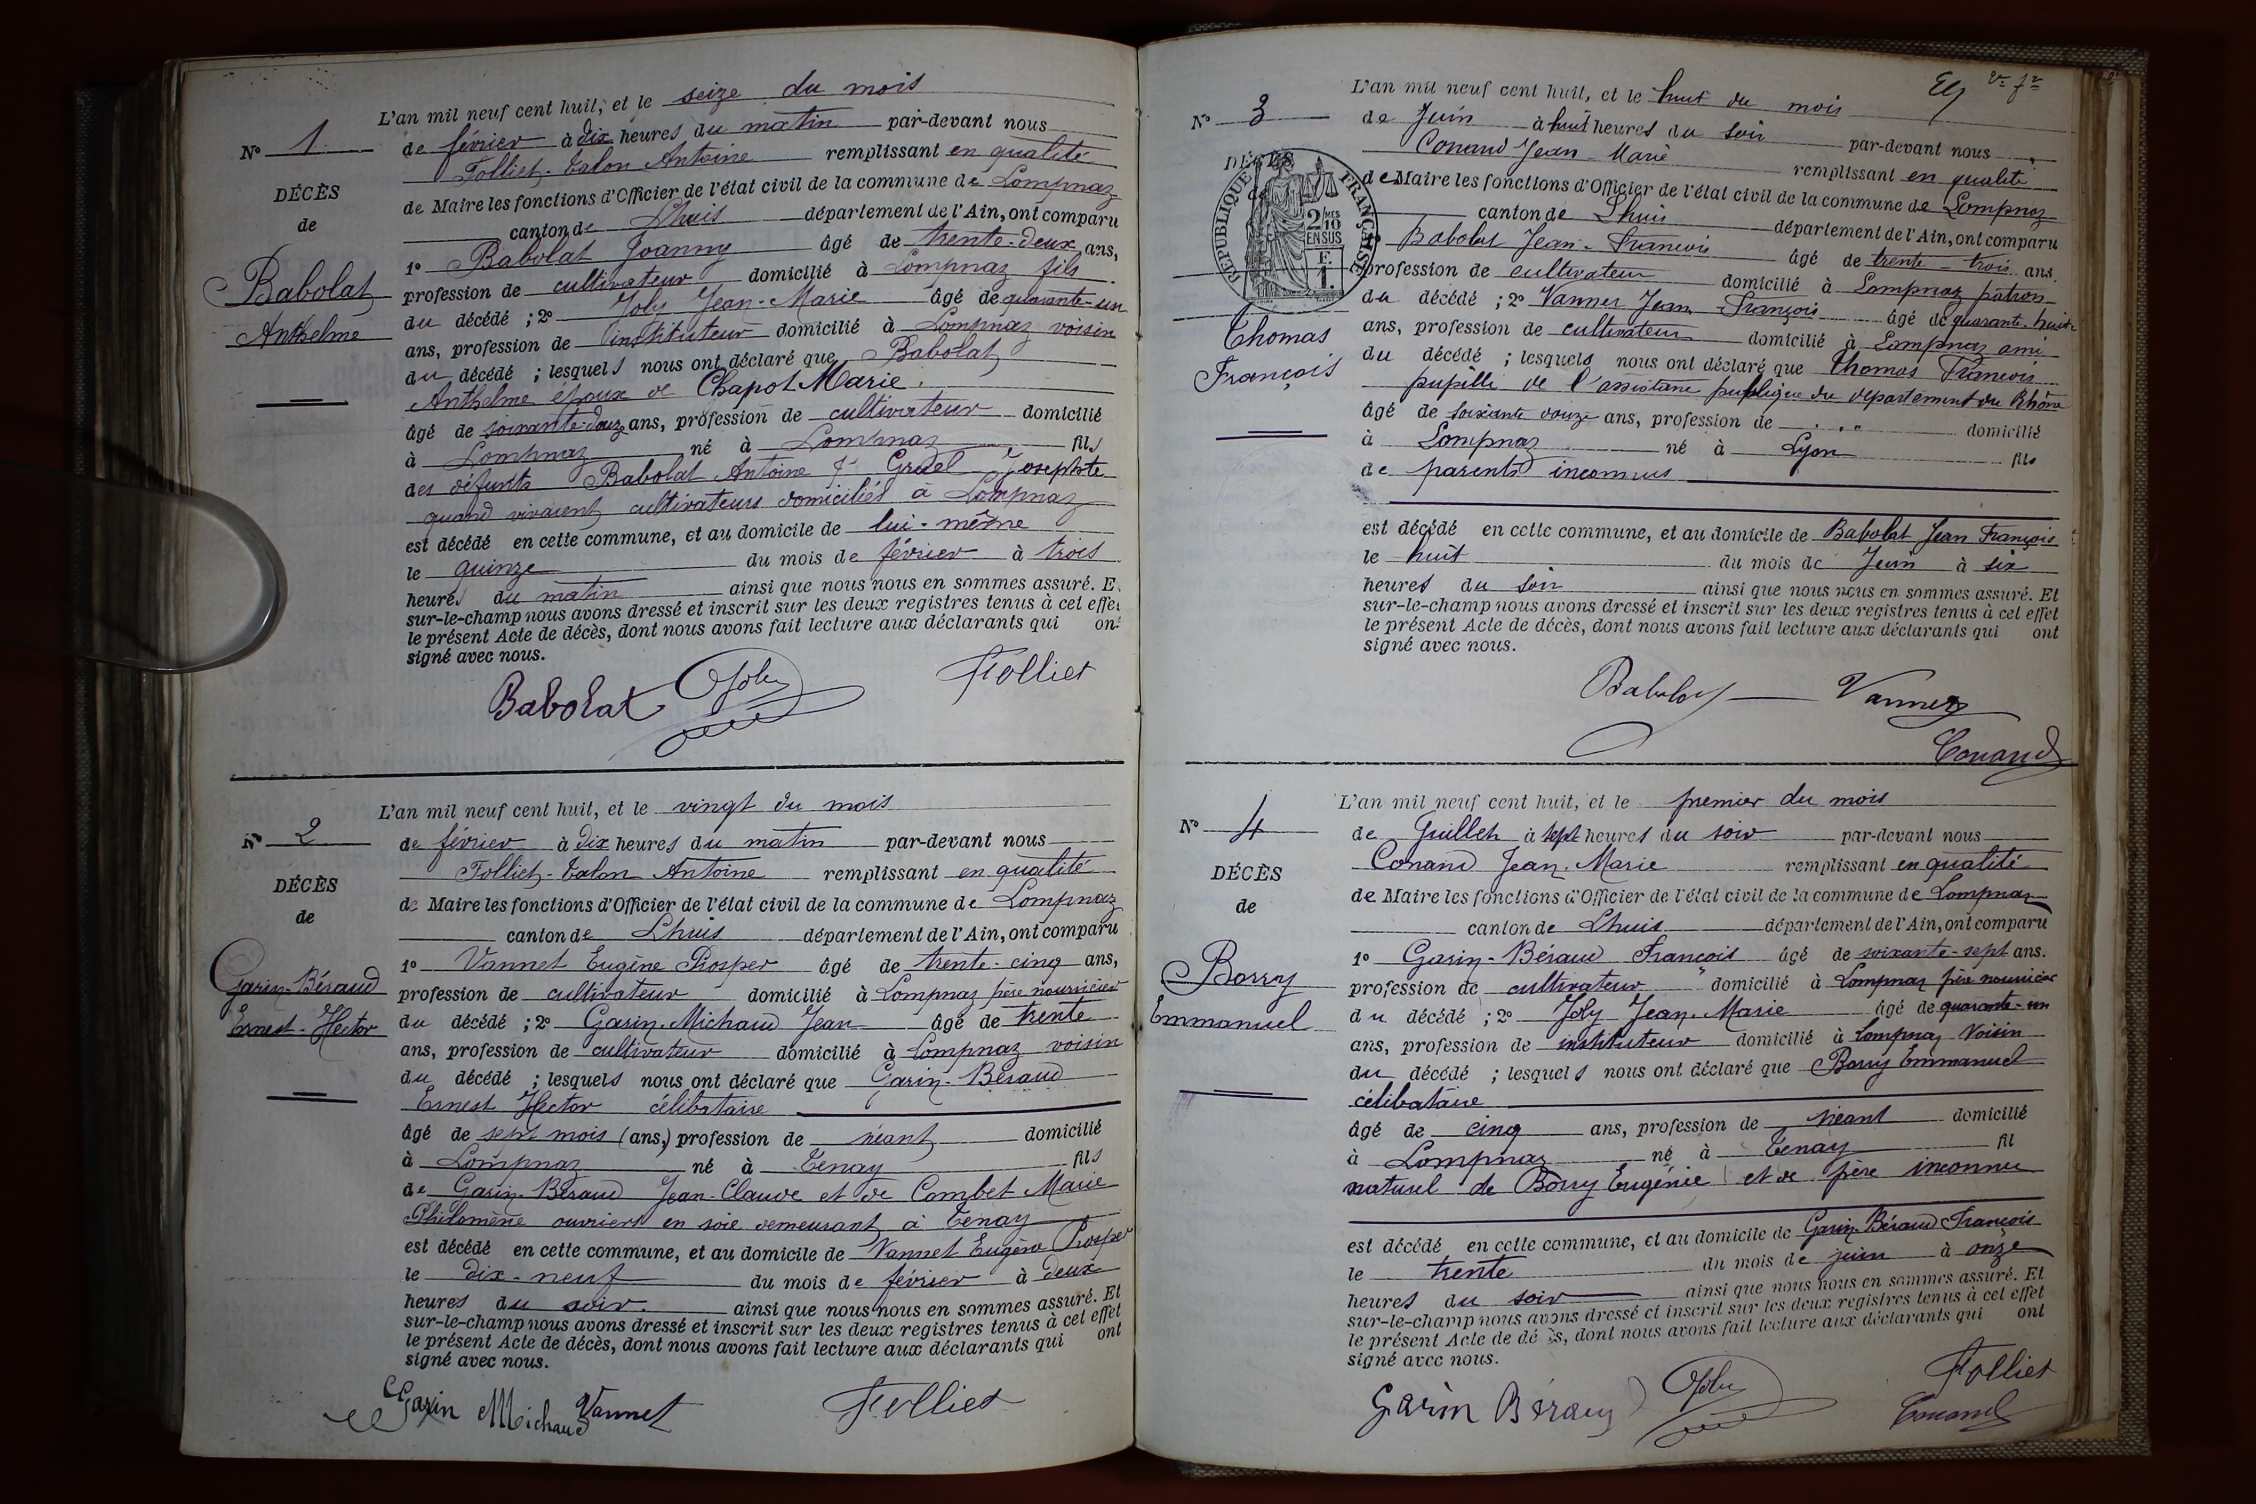 N° 1
DÉCÈS
de
Babolat
Anthelme
L'an mil neuf cent huit, et le seize du mois
de février à dix heures du matin par-devant nous
Folliet-Talon Antoine remplissant en qualité
de Maire les fonctions d'Officier de l'état civil de la commune de Lompnaz
canton de Lhuis département de l'Ain, ont comparu
1° Babolat Joanny âgé de trente-deux ans,
profession de cultivateur domicilié à Lompnaz fils
du décédé ; 2° Joly Jean-Marie âgé de quarante-un
ans, profession de instituteur domicilié à Lompnaz voisin
du décédé ; lesquels nous ont déclaré que Babolat
Anthelme époux de Chapot Marie
âgé de soixante-douze ans, profession de cultivateur domicilié
à Lompnaz né à Lompnaz fils
des défunts Babolat Antoine & Josephte
quand vivaient cultivateurs domiciliés à Lompnaz
est décédé en cette commune, et au domicile de lui-même
le quinze du mois de février à trois
heures du matin ainsi que nous nous en sommes assuré. E
sur-le-champ nous avons dressé et inscrit sur les deux registres tenus à cet effet
le présent Acte de décès, dont nous avons fait lecture aux déclarants qui ont
signé avec nous.
Babolat Joly Folliet
N° 2
DÉCÈS
de
Garin-Béraud
Ernest-Hector
L'an mil neuf cent huit, et le vingt du mois
de février à dix heures du matin par-devant nous
Folliet-Talon Antoine remplissant en qualité
de Maire les fonctions d'Officier de l'état civil de la commune de Lompnaz
canton de Lhuis département de l'Ain, ont comparu
1° Vannet Eugène Prosper âgé de trente-cinq ans,
profession de cultivateur domicilié à Lompnaz père nourricier
du décédé ; 2° Garin-Michaud Jean âgé de trente
ans, profession de cultivateur domicilié à Lompnaz voisin
du décédé ; lesquels nous ont déclaré que Garin-Béraud
Ernest Hector célibataire
âgé de sept mois (ans,) profession de néant domicilié
à Lompnaz né à Tenay fils
de Garin-Béraud Jean-Claude et de Combet Marie
Philomène ouvriers en soie demeurant à Tenay
est décédé en cette commune, et au domicile de Vannet Eugène Prosper
le dix-neuf du mois de février à deux
heures du soir. ainsi que nous nous en sommes assuré. Et
sur-le-champ nous avons dressé et inscrit sur les deux registres tenus à cet effet
le présent Acte de décès, dont nous avons fait lecture aux déclarants qui ont
signé avec nous.
Garin Michaud Vannet Folliet
N° 3
DÉCÈS
de
RÉPUBLIQUE FRANÇAISE
2/10 MES
EN SUS
F.
1.
Thomas
François
L'an mil neuf cent huit, et le huit du mois
de Juin à huit heures du soir par-devant nous
Conand Jean-Marie remplissant en qualité
de Maire les fonctions d'Officier de l'état civil de la commune de Lompnaz
canton de Lhuis département de l'Ain, ont comparu
Babolat Jean-François âgé de trente-trois ans
profession de cultivateur domicilié à Lompnaz patron
du décédé ; 2° Vannet Jean François âgé de quarante-huit
ans, profession de cultivateur domicilié à Lompnaz ami
du décédé ; lesquels nous ont déclaré que Thomas François
pupille de l'assistance publique du département du Rhône
âgé de soixante douze ans, profession de domicilié
à Lompnaz né à Lyon fils
de parents inconnus
est décédé en cette commune, et au domicile de Babolat Jean François
le huit du mois de Juin à six
heures du soir ainsi que nous nous en sommes assuré. Et
sur-le-champ nous avons dressé et inscrit sur les deux registres tenus à cet effet
le présent Acte de décès, dont nous avons fait lecture aux déclarants qui ont
signé avec nous.
Babolat Vannet
Conand
N° 4
DÉCÈS
de
Borry
Emmanuel
L'an mil neuf cent huit, et le premier du mois
de Juillet à sept heures du soir par-devant nous
Conand Jean-Marie remplissant en qualité
de Maire les fonctions d'Officier de l'état civil de la commune de Lompnaz
canton de Lhuis département de l'Ain, ont comparu
1° Garin-Béraud François âgé de soixante-sept ans.
profession de cultivateur domicilié à Lompnaz père nourricier
du décédé ; 2° Joly Jean-Marie âgé de quarante-un
ans, profession de instituteur domicilié à Lompnaz Voisin
du décédé ; lesquels nous ont déclaré que Borry Emmanuel
célibataire
âgé de cinq ans, profession de néant domicilié
à Lompnaz né à Tenay fil
naturel de Borry Eugénie et de père inconnu
est décédé en cette commune, et au domicile de Garin-Béraud François
le trente du mois de juin à onze
heures du soir ainsi que nous nous en sommes assuré. Et
sur-le-champ nous avons dressé et inscrit sur les deux registres tenus à cet effet
le présent Acte de décès, dont nous avons fait lecture aux déclarants qui ont
signé avec nous.
Garin Béraud Joly Folliet
Conand